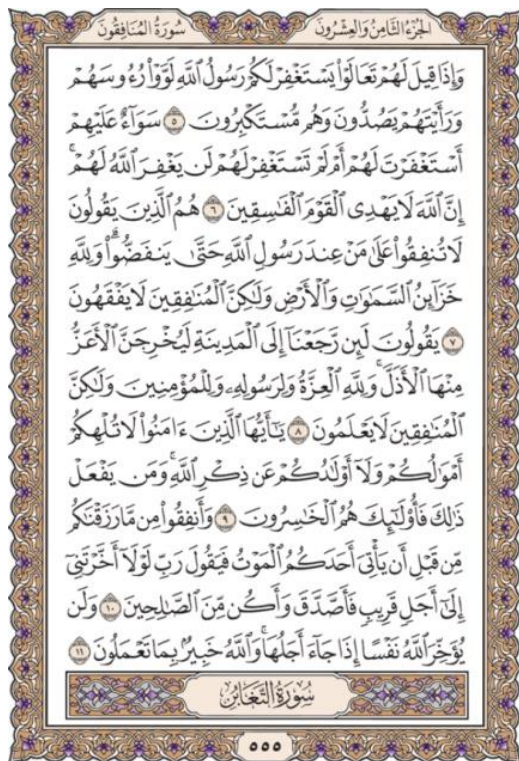 سُورَةُ المُنَافِقُونَ
الجُزْءُ الثَّامِنُ وَالعِشْرُونَ
وَإِذَا قِيلَ لَهُمْ تَعَالَوْا۟ يَسْتَغْفِرْ لَكُمْ رَسُولُ ٱللَّهِ لَوَّوْا۟ رُءُوسَهُمْ
وَرَأَيْتَهُمْ يَصُدُّونَ وَهُم مُّسْتَكْبِرُونَ ٥ سَوَآءٌ عَلَيْهِمْ
أَسْتَغْفَرْتَ لَهُمْ أَمْ لَمْ تَسْتَغْفِرْ لَهُمْ لَن يَغْفِرَ ٱللَّهُ لَهُمْ ۚ
إِنَّ ٱللَّهَ لَا يَهْدِى ٱلْقَوْمَ ٱلْفَـٰسِقِينَ ٦ هُمُ ٱلَّذِينَ يَقُولُونَ
لَا تُنفِقُوا۟ عَلَىٰ مَنْ عِندَ رَسُولِ ٱللَّهِ حَتَّىٰ يَنفَضُّوا۟ ۗ وَلِلَّهِ
خَزَآئِنُ ٱلسَّمَـٰوَٰتِ وَٱلْأَرْضِ وَلَـٰكِنَّ ٱلْمُنَـٰفِقِينَ لَا يَفْقَهُونَ
٧ يَقُولُونَ لَئِن رَّجَعْنَآ إِلَى ٱلْمَدِينَةِ لَيُخْرِجَنَّ ٱلْأَعَزُّ
مِنْهَا ٱلْأَذَلَّ ۚ وَلِلَّهِ ٱلْعِزَّةُ وَلِرَسُولِهِۦ وَلِلْمُؤْمِنِينَ وَلَـٰكِنَّ
ٱلْمُنَـٰفِقِينَ لَا يَعْلَمُونَ ٨ يَـٰٓأَيُّهَا ٱلَّذِينَ ءَامَنُوا۟ لَا تُلْهِكُمْ
أَمْوَٰلُكُمْ وَلَآ أَوْلَـٰدُكُمْ عَن ذِكْرِ ٱللَّهِ ۚ وَمَن يَفْعَلْ
ذَٰلِكَ فَأُو۟لَـٰٓئِكَ هُمُ ٱلْخَـٰسِرُونَ ٩ وَأَنفِقُوا۟ مِن مَّا رَزَقْنَـٰكُم
مِّن قَبْلِ أَن يَأْتِىَ أَحَدَكُمُ ٱلْمَوْتُ فَيَقُولَ رَبِّ لَوْلَآ أَخَّرْتَنِىٓ
إِلَىٰٓ أَجَلٍ قَرِيبٍ فَأَصَّدَّقَ وَأَكُن مِّنَ ٱلصَّـٰلِحِينَ ١٠ وَلَن
يُؤَخِّرَ ٱللَّهُ نَفْسًا إِذَا جَآءَ أَجَلُهَا ۚ وَٱللَّهُ خَبِيرٌۢ بِمَا تَعْمَلُونَ ١١
سُورَةُ التَّغَابُنِ
٥٥٥